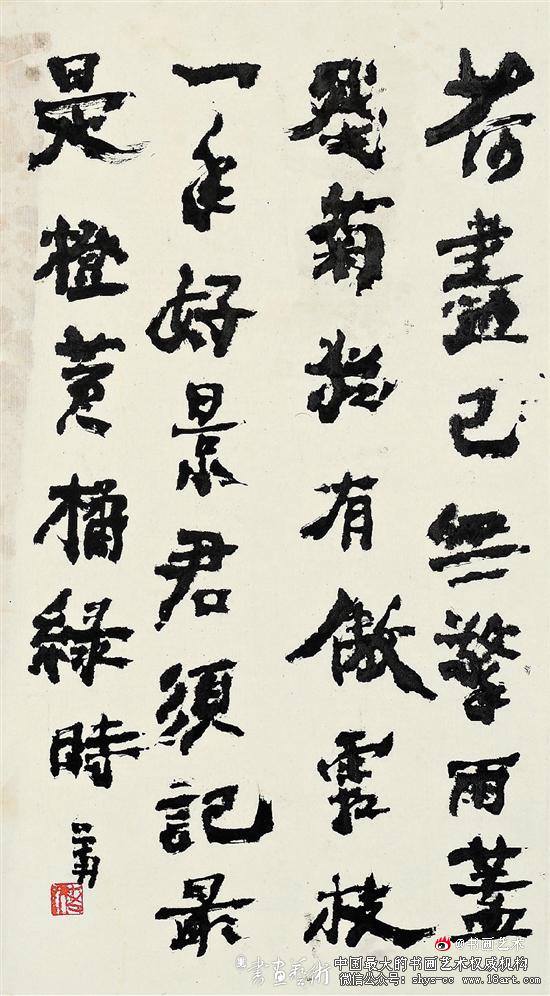 荷盡已無擎雨蓋
殘菊猶有傲霜枝
一年好景君須記最
是橙黃橘綠時
@书画艺术
書画藝術
中国最大的书画艺术权威机构
微信公众号: shys-cc www.18art.com